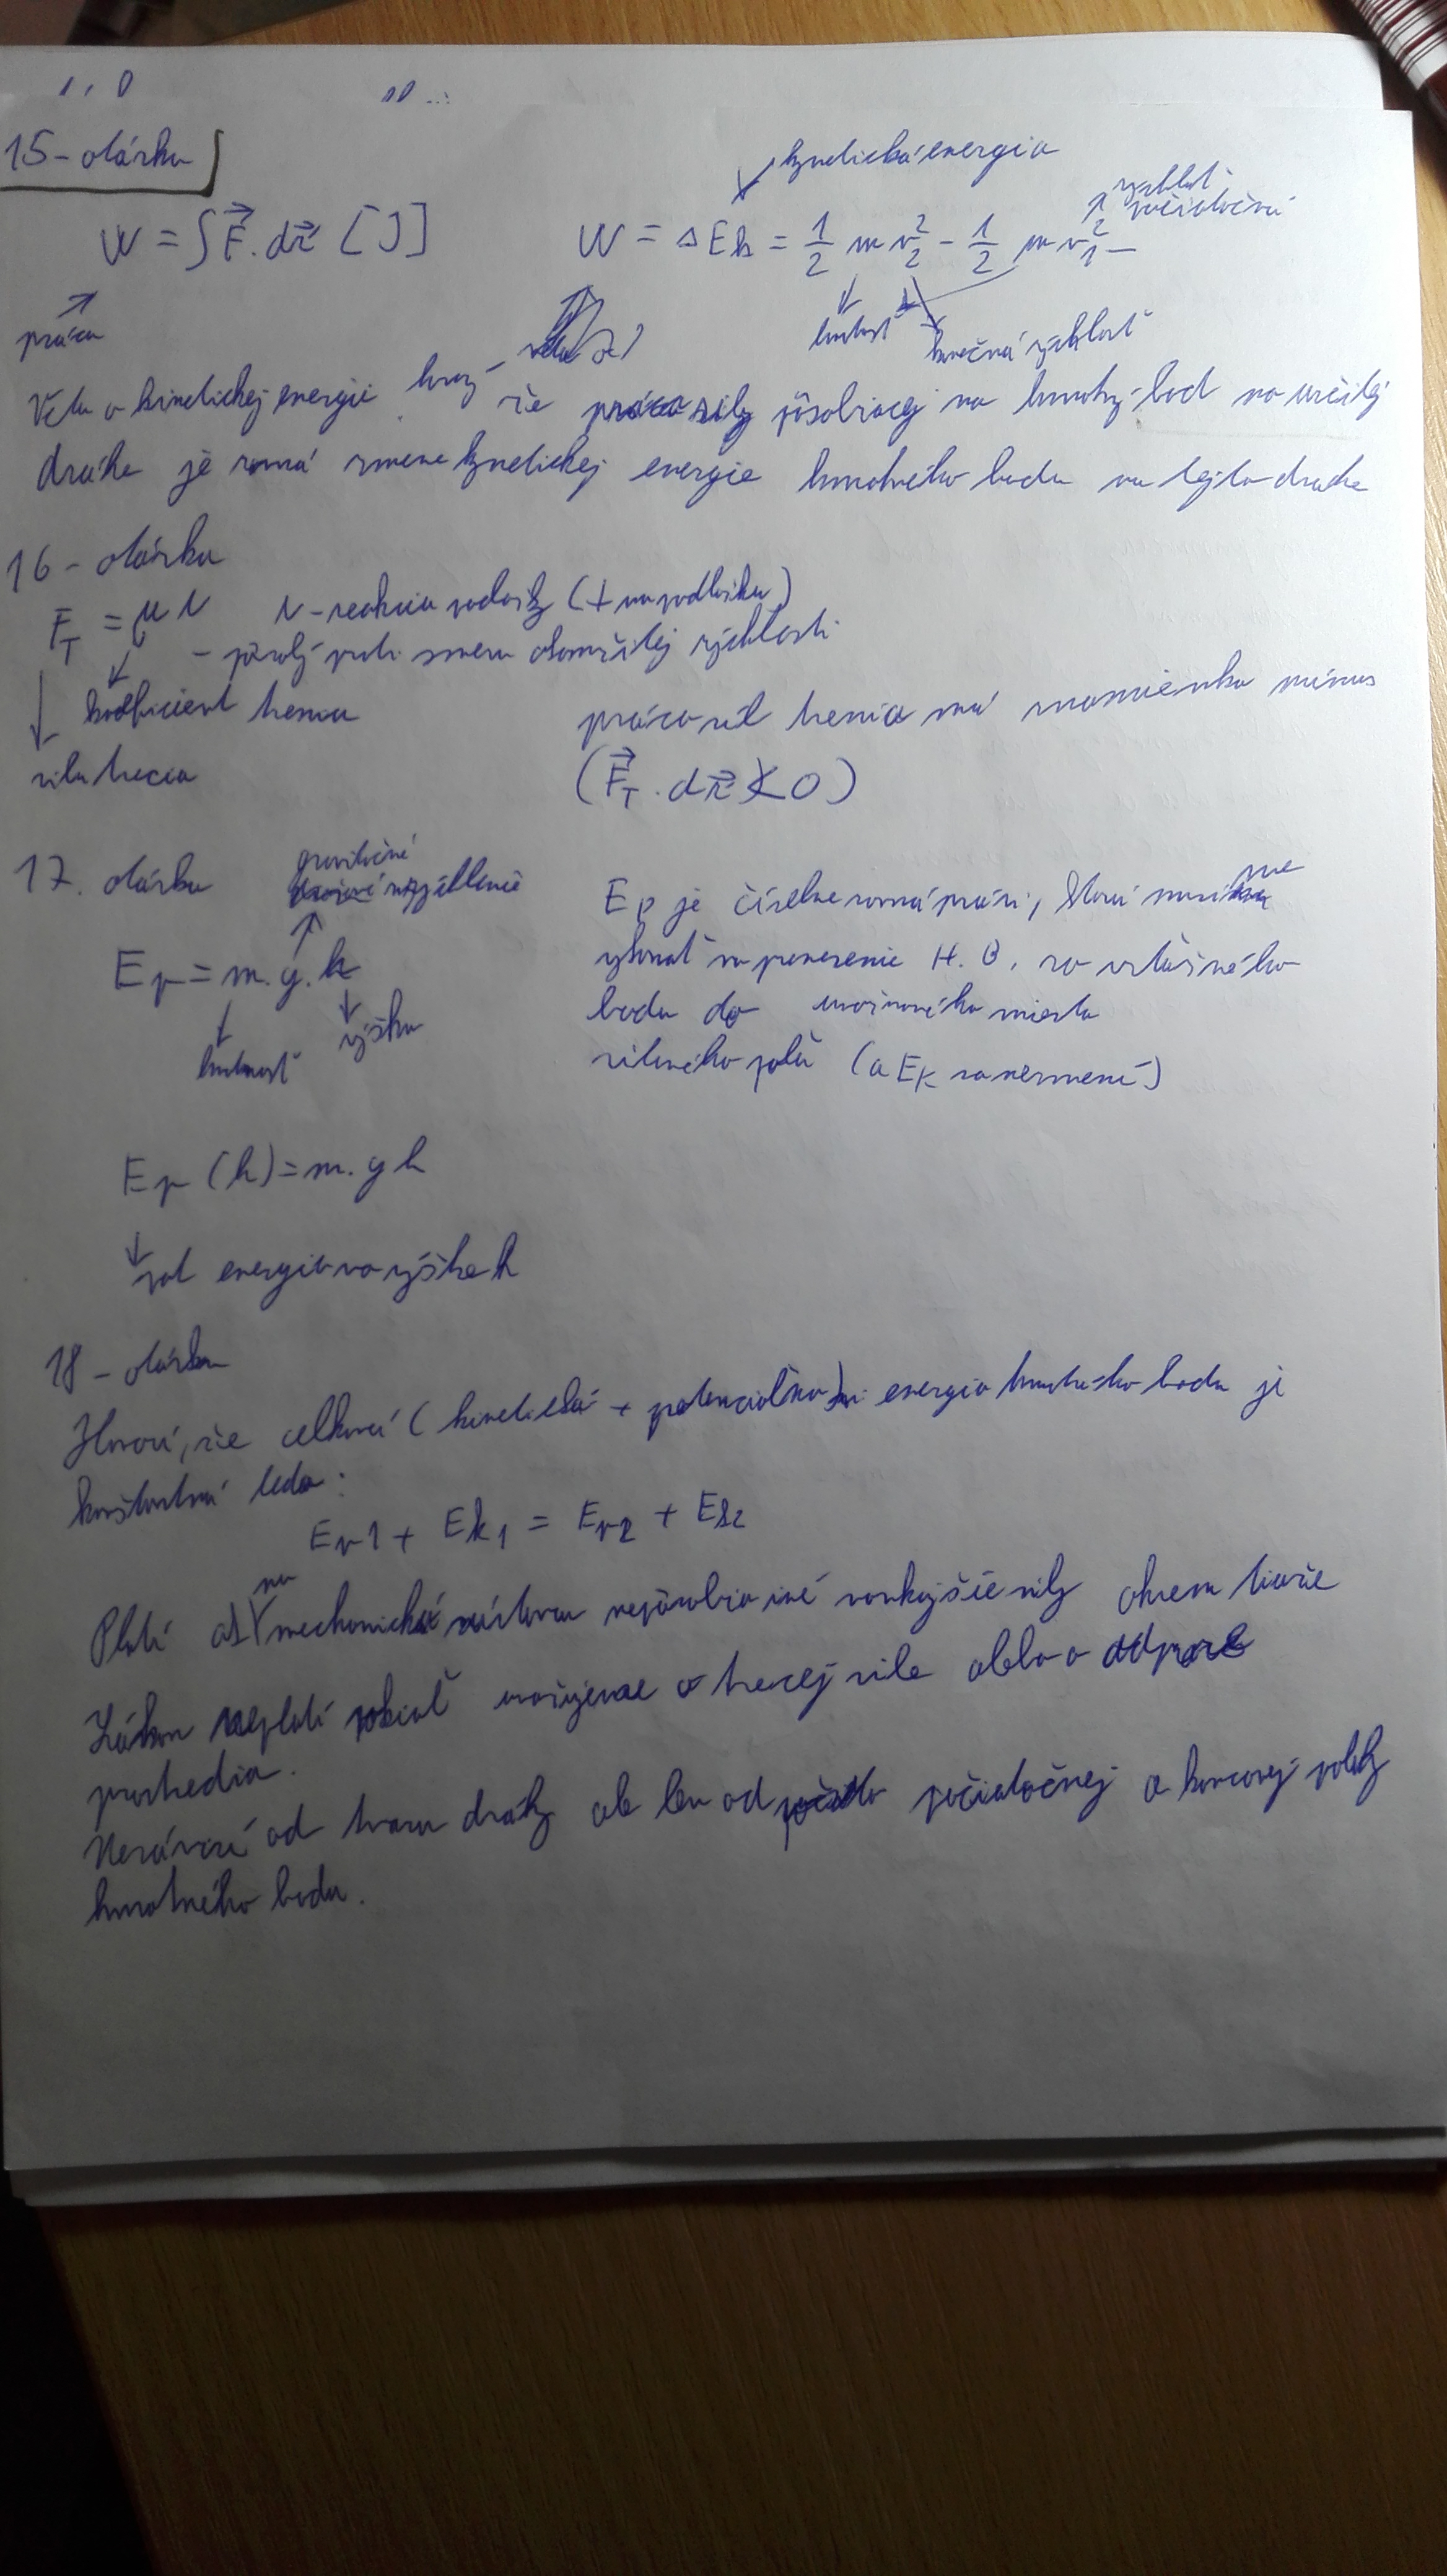 15 - otázka
W = ∫F⃗.dr⃗ [J]
práca
kynetická energia
W = ΔEk = 1/2 m v₂² - 1/2 m v₁²
rýchlosť
počiatočná
hmotnosť
konečná rýchlosť
Veta o kinetickej energii hovorí že práca sily pôsobiacej na hmotný bod na určitej
dráhe je rovná zmene kynetickej energie hmotného bodu na tejto dráhe
16 - otázka
F_T = μ N N - reakcia podložky (⊥ na podložku)
- pôsobí proti smeru okamžitej rýchlosti
koeficient trenia
sila trecia
práca síl trenia má znamienko mínus
(F⃗_T . dr⃗ < 0)
17. otázka
gravitačné
zrýchlenie
Ep = m.g.h
hmotnosť
výška
Ep je číselne rovná práci, ktorú musíme
vykonať na prenesenie H.B. zo vzťažného
bodu do uvažovaného miesta
silového poľa (a Ek sa nezmení)
Ep (h) = m. g h
pot energia vo výške h
18 - otázka
Hovorí, že celková (kinetická + potenciálna) energia hmotného bodu je
konštantná teda:
Ep1 + Ek1 = Ep2 + Ek2
Platí ak na mechanickú sústavu nepôsobia iné vonkajšie sily okrem tiaže
Zákon neplatí pokiaľ uvažujeme o trecej sile alebo o odpore
prostredia.
Nezávisí od tvaru dráhy ale len od počiatočnej a koncovej polohy
hmotného bodu.